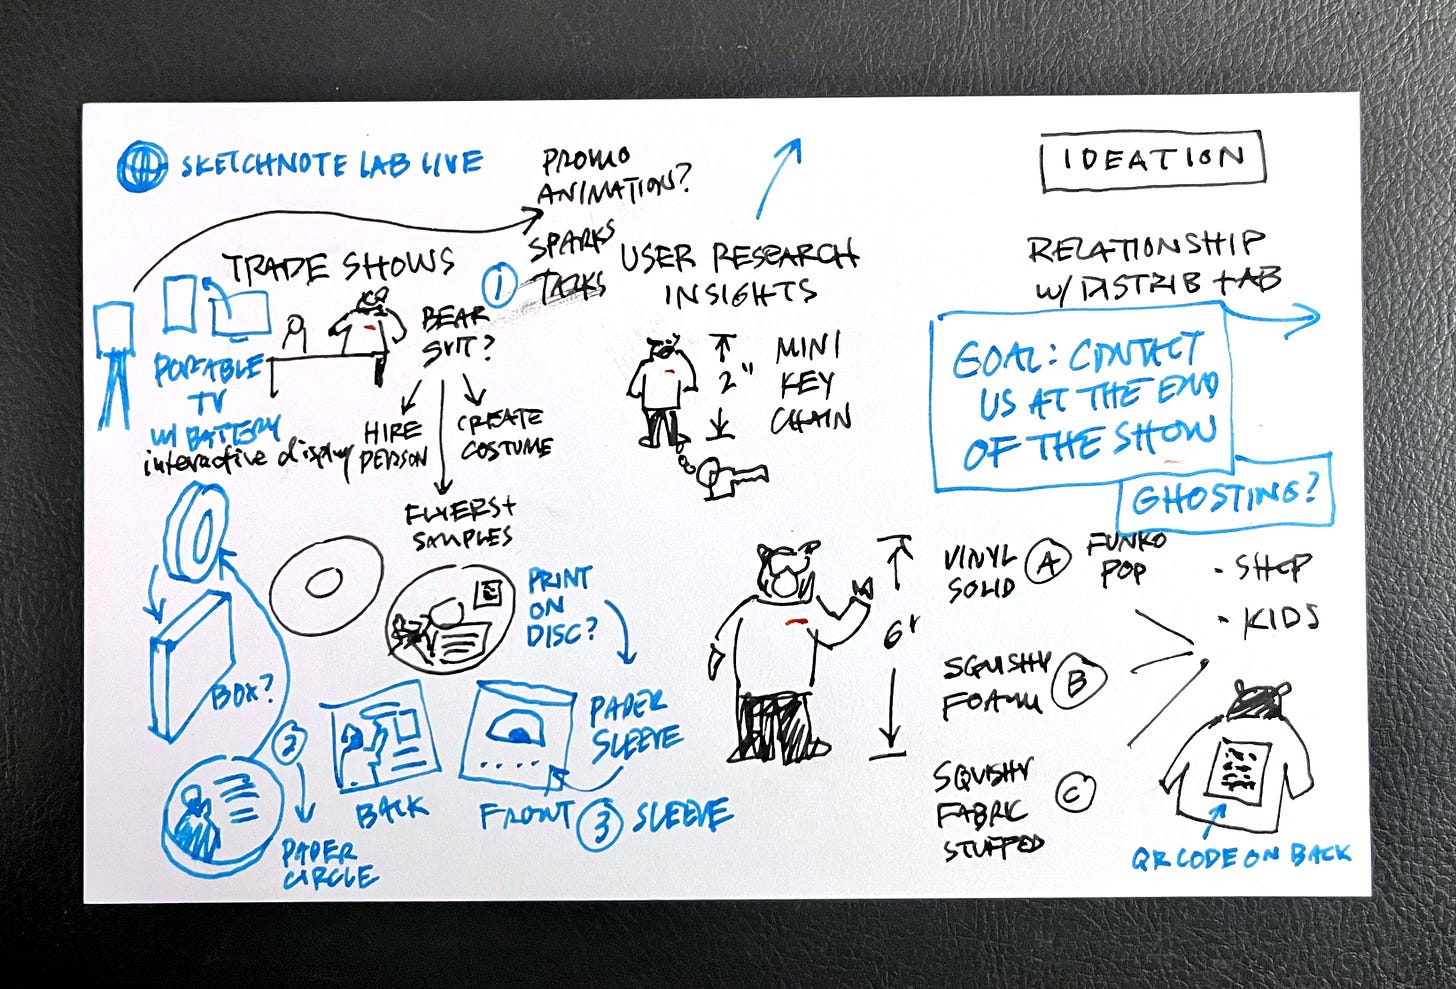 SKETCHNOTE LAB LIVE
PROMO
ANIMATION?
SPARKS
TALKS
IDEATION
TRADE SHOWS
1
BEAR
SUIT?
PORTABLE
TV
W/ BATTERY
interactive display
HIRE
PERSON
CREATE
COSTUME
FLYERS +
SAMPLES
USER RESEARCH
INSIGHTS
2"
MINI
KEY
CHAIN
RELATIONSHIP
W/ DISTRIB + AB
GOAL: CONTACT
US AT THE END
OF THE SHOW
GHOSTING?
PRINT
ON
DISC?
BOX?
2
PAPER
CIRCLE
BACK
FRONT
PAPER
SLEEVE
3 SLEEVE
6"
VINYL
SOLID
A
FUNKO
POP
SQUISHY
FOAM
B
SQUISHY
FABRIC
STUFFED
C
· SHOP
· KIDS
QR CODE ON BACK